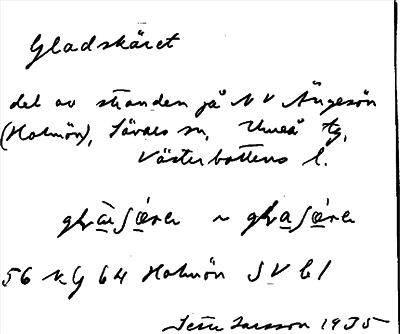 Gladskäret
del av stranden på N V Ängesön
(Holmön), Sävars sn, Umeå tg,
Västerbottens l.
56 NG 64 Holmön SV b1
Larsson 1935